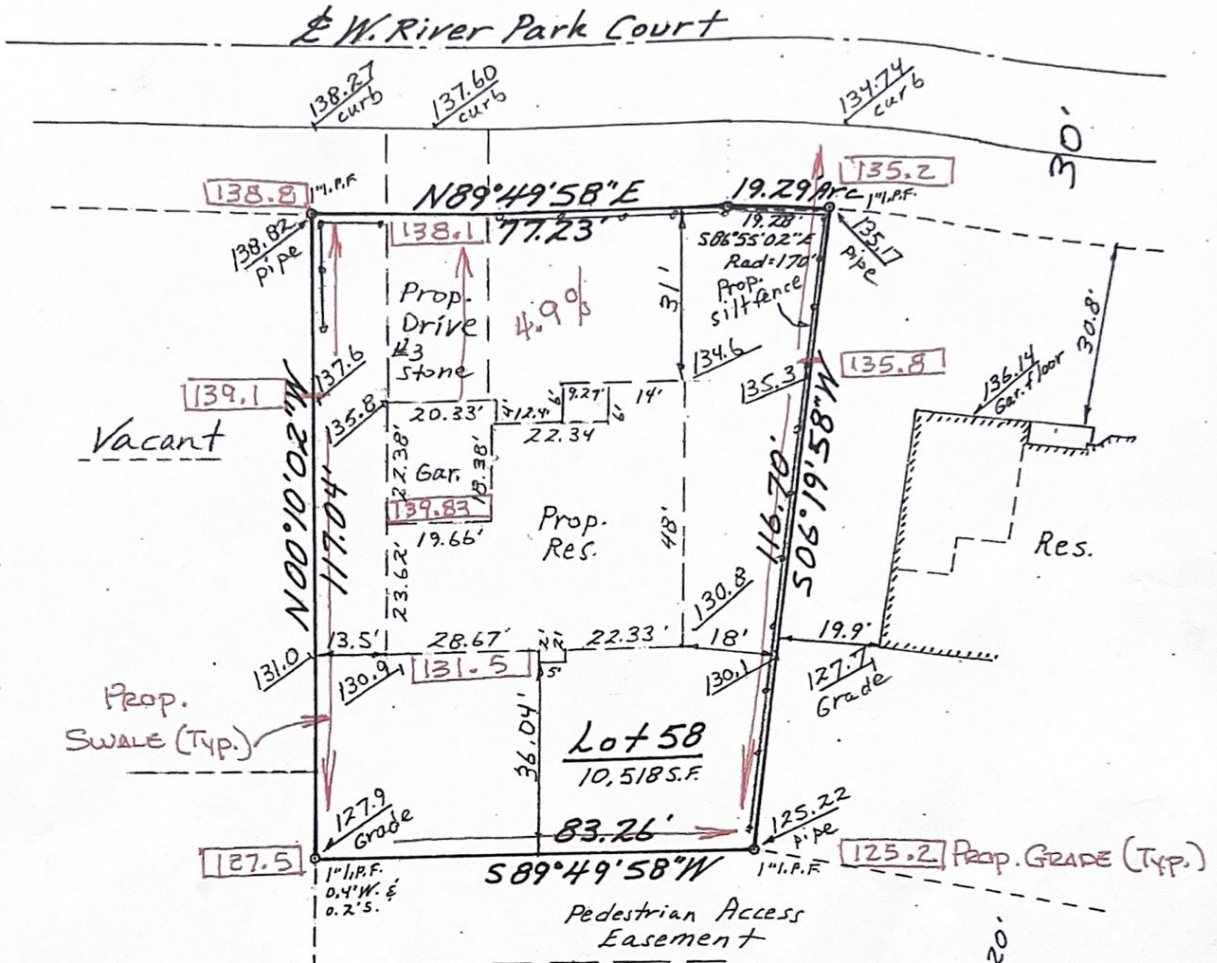 ℄ W. River Park Court
138.27
curb
137.60
curb
134.74
curb
30'
138.8
1" I.P.F.
N89°49'58"E
77.23'
19.29 Arc
1" I.P.F.
135.2
138.82
pipe
138.1
19.28'
S86°55'02"E
Rad=170'
Prop.
siltfence
135.17
pipe
31'
Prop.
Drive
#3
stone
4.9%
30.8'
137.6
134.6
135.3
135.8
136.14
Gar. floor
139.1
135.8
20.33'
12.4'
6'
9.27'
6'
14'
22.34
Vacant
22.38'
Gar.
18.38'
139.83
19.66'
Prop.
Res.
48'
116.70'
S06°19'58"W
Res.
N00°10'02"W
117.04'
23.62'
130.8
13.5'
28.67'
2'
2'
5'
22.33'
18'
19.9'
131.0
130.9
131.5
130.1
127.7
Grade
Prop.
Swale (Typ.)
36.04'
Lot 58
10,518 S.F.
127.9
Grade
83.26'
125.22
pipe
127.5
1" I.P.F.
0.4' W. &
0.2' S.
S89°49'58"W
1" I.P.F.
125.2 Prop. Grade (Typ.)
Pedestrian Access
Easement
20'